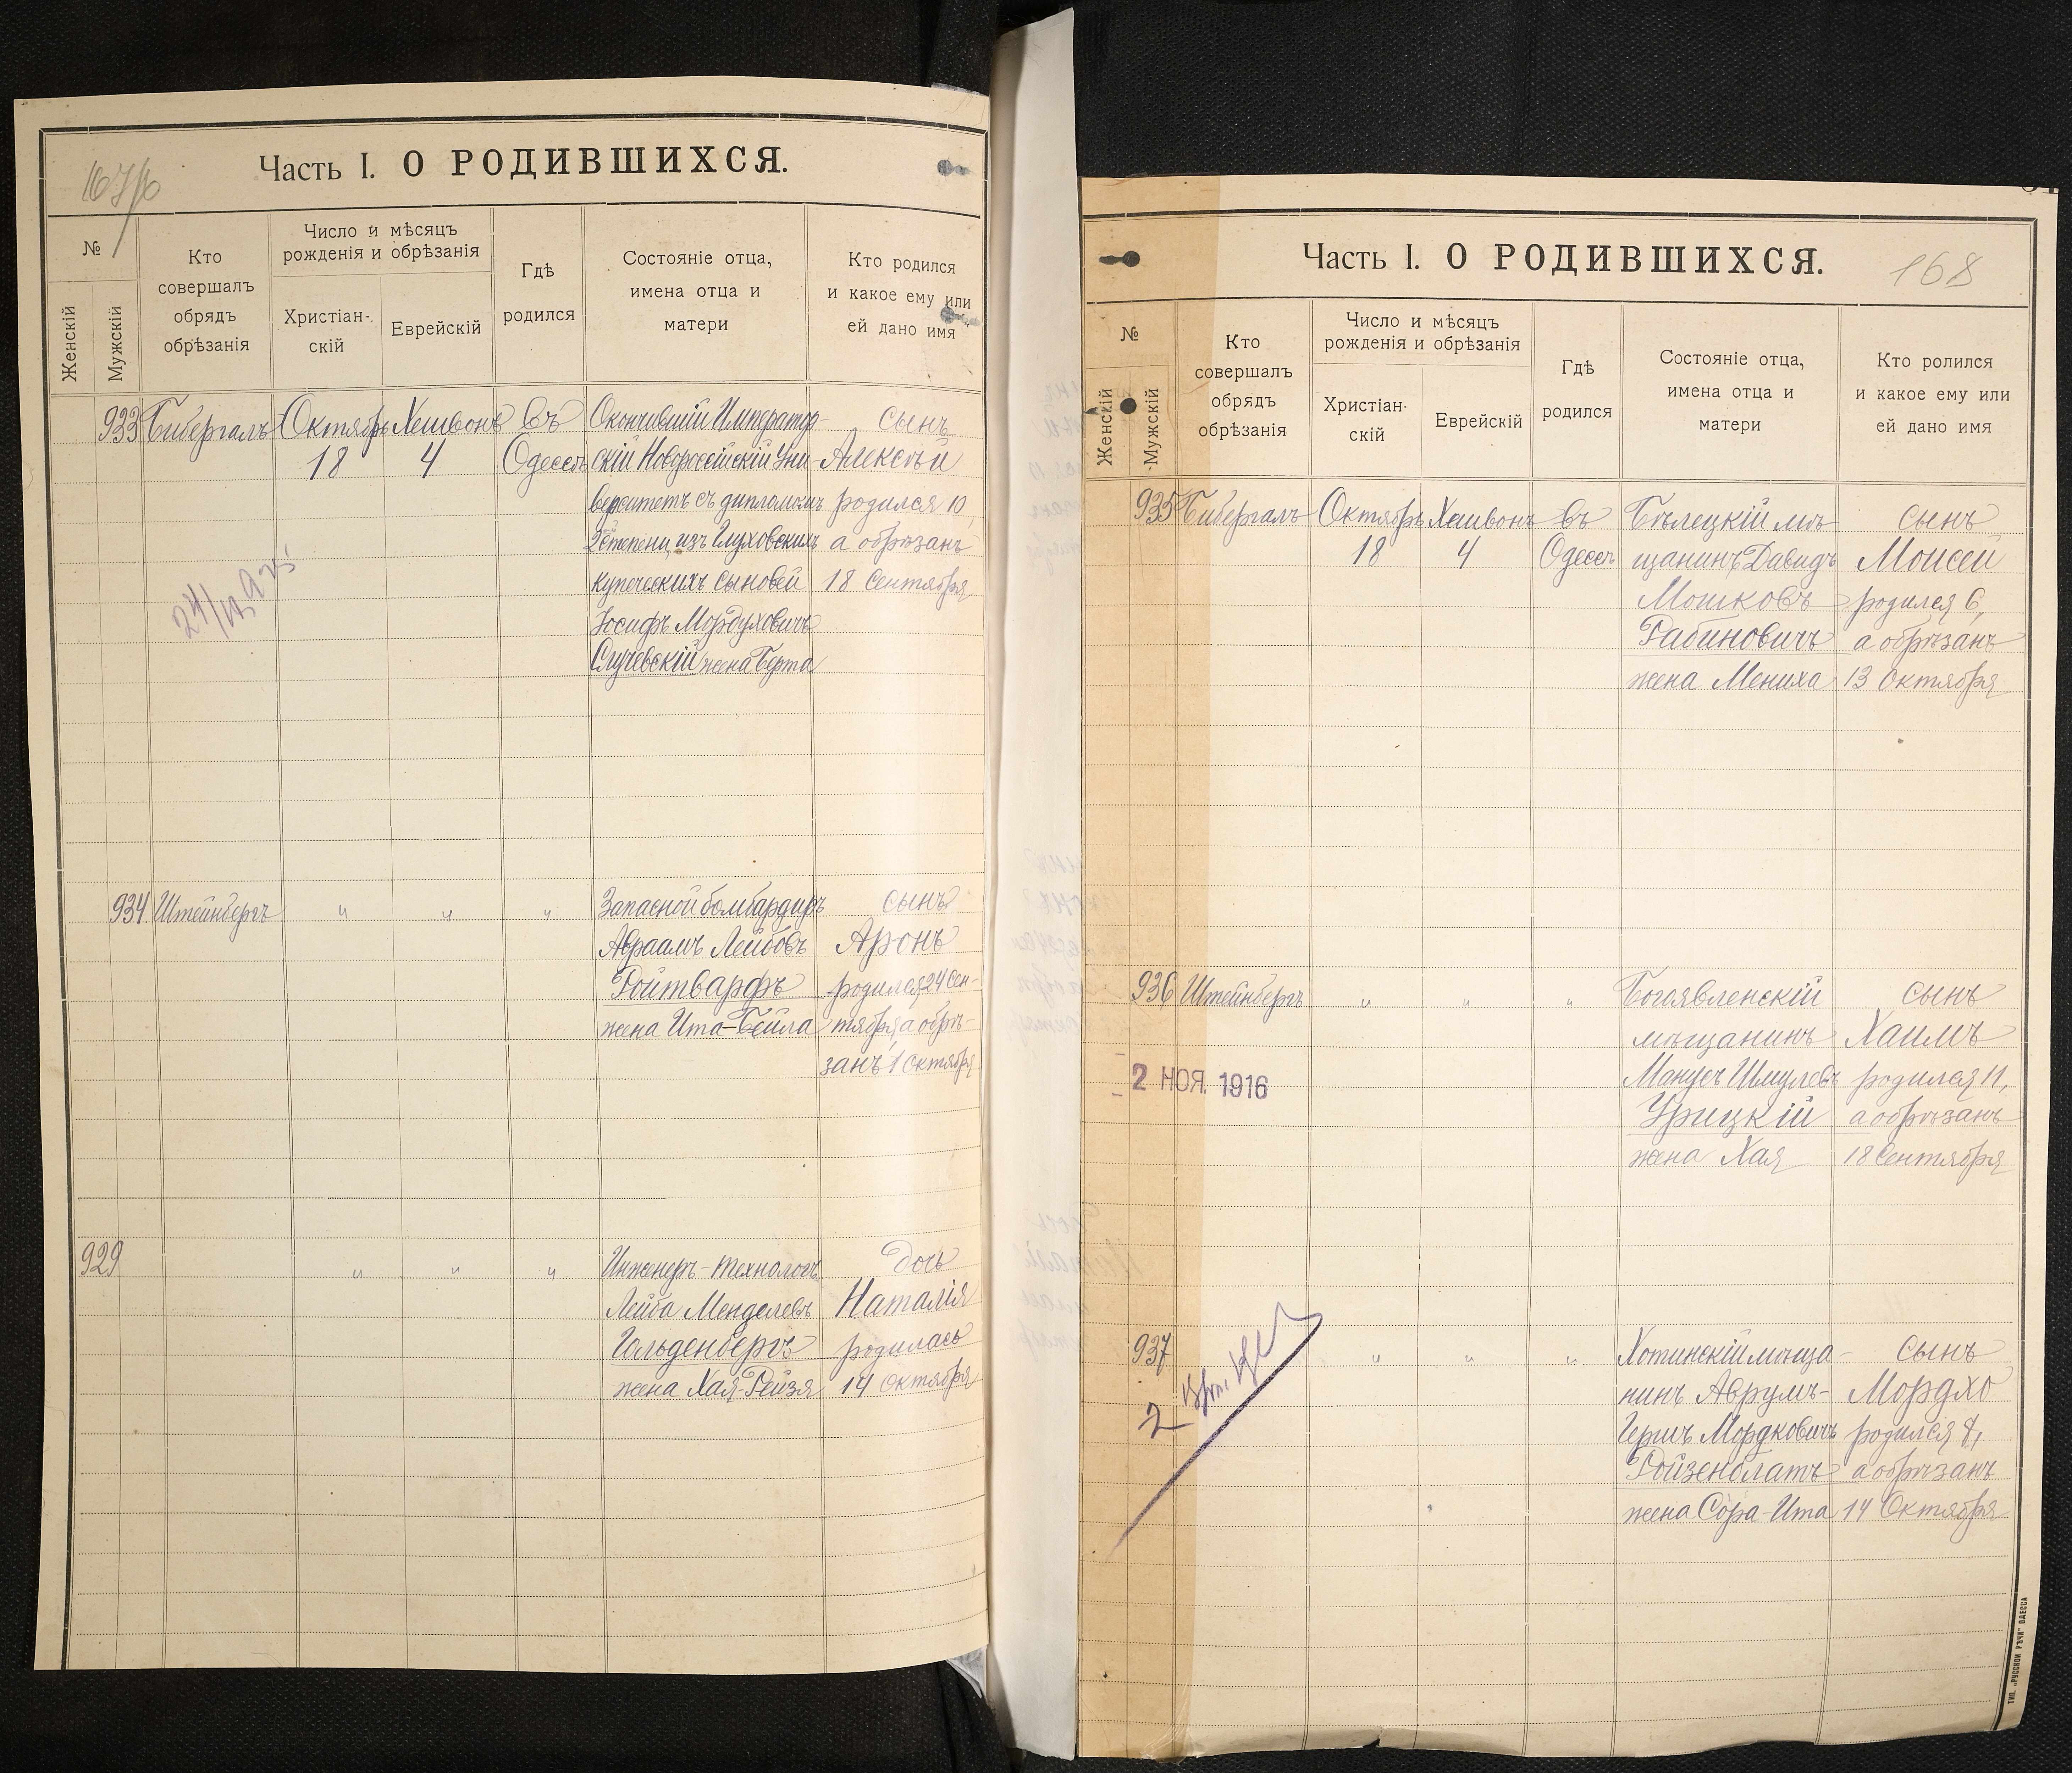 167/10
Часть I. О РОДИВШИХСЯ.
№
Женскій
Мужскій
Кто совершалъ обрядъ обрѣзанія
Число и мѣсяцъ рожденія и обрѣзанія
Христіан-скій
Еврейскій
Гдѣ родился
Состояніе отца, имена отца и матери
Кто родился и какое ему или ей дано имя
933 Бибергалъ Октябрь Хешвонъ въ Окончившій Император- сынъ
18 4 Одессѣ скій Новороссійскій Уни- Алексѣй
верситетъ съ дипломомъ родился 10,
2 степени, изъ Глуховскихъ а обрѣзанъ
купеческихъ сыновей 18 Сентября
Іосифъ Мордуховичъ
Случевскій жена Берта
934. Штейнбергъ " " " Запасной бомбардиръ сынъ
Авраамъ Лейбовъ Аронъ
Ройтварфъ родился 24 Сен-
жена Ита-Бейла тября, а обрѣ-
занъ 1 Октября
929 " " " Инженеръ-технологъ дочь
Лейба Менделевъ Наталія
Гольденбергъ родилась
жена Хая-Рейзя 14 Октября
168
Часть I. О РОДИВШИХСЯ.
№
Женскій
Мужскій
Кто совершалъ обрядъ обрѣзанія
Число и мѣсяцъ рожденія и обрѣзанія
Христіан-скій
Еврейскій
Гдѣ родился
Состояніе отца, имена отца и матери
Кто ролился и какое ему или ей дано имя
935 Бибергалъ Октябрь Хешвонъ въ Бѣлецкій мѣ- сынъ
18 4 Одессѣ щанинъ Давидъ Моисей
Мошковъ родился 6,
Рабиновичъ а обрѣзанъ
жена Мениха 13 Октября
936 Штейнбергъ " " " Богоявленскій сынъ
мѣщанинъ Хаимъ
2 НОЯ. 1916 Манусъ Шмулевъ родился 11,
Урицкій а обрѣзанъ
жена Хая 18 Сентября
937 " " " Хотинскій мѣща- сынъ
нинъ Аврумъ- Мордхо
2 Гершъ Мордковичъ родился 8,
Ройзенблатъ а обрѣзанъ
жена Сора-Ита 14 Октября
ТИП. „РУССКОЙ РѢЧИ" ОДЕССА